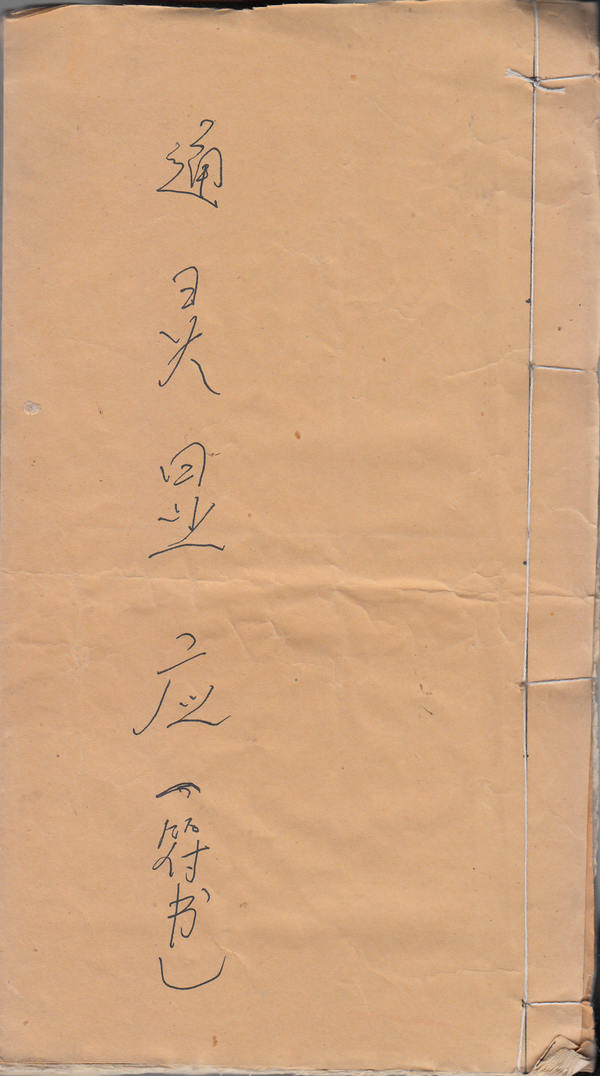 通灵显应（符书）